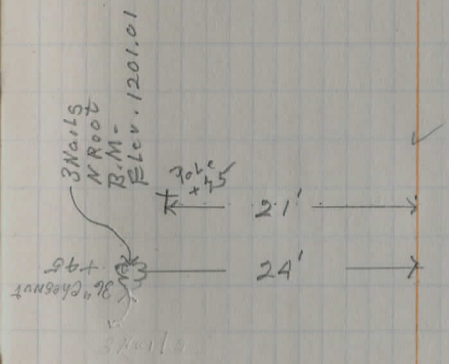 3 Nails
N Root
B.M-
Elev. 1201.01
Pole
+45
21'
24'
36" Chesnut
+45
3 Nails